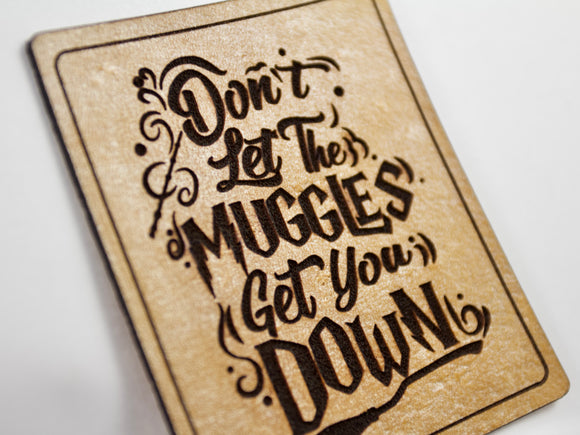 Don't
Let The
MUGGLES
Get You
DOWN